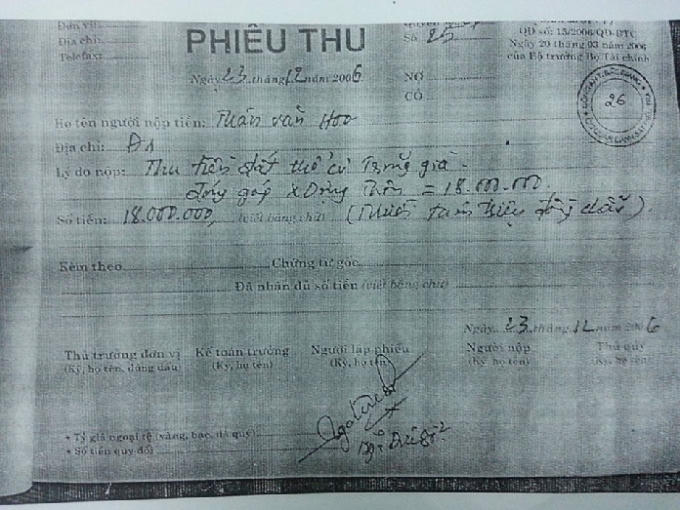 Đơn vị:
Địa chỉ:
Telefax:
PHIẾU THU
Số 25
QĐ số: 15/2006/QĐ-BTC
Ngày 20 tháng 03 năm 2006
của Bộ trưởng Bộ Tài chính
Ngày 23 tháng 12 năm 2006
NỢ
CÓ
26
Họ tên người nộp tiền: Thân Văn Hoà
Địa chỉ:
Lý do nộp: Thu tiền đất thổ cư
đóng góp xDựng thôn = 18.000.000,
Số tiền: 18.000.000, (viết bằng chữ) (Mười tám triệu đồng chẵn).
Kèm theo Chứng từ gốc
Đã nhận đủ số tiền (viết bằng chữ)
Ngày 23 tháng 12 năm 2006
Thủ trưởng đơn vị
(Ký, họ tên, đóng dấu)
Kế toán trưởng
(Ký, họ tên)
Người lập phiếu
(Ký, họ tên)
Người nộp
(Ký, họ tên)
Thủ quỹ
(Ký, họ tên)
+ Tỷ giá ngoại tệ (vàng, bạc, đá quý)
+ Số tiền quy đổi